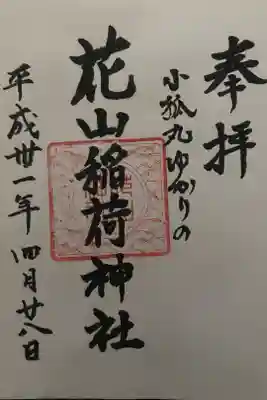 奉拝
小狐丸ゆかりの
花山稲荷神社
平成卅一年四月廿八日